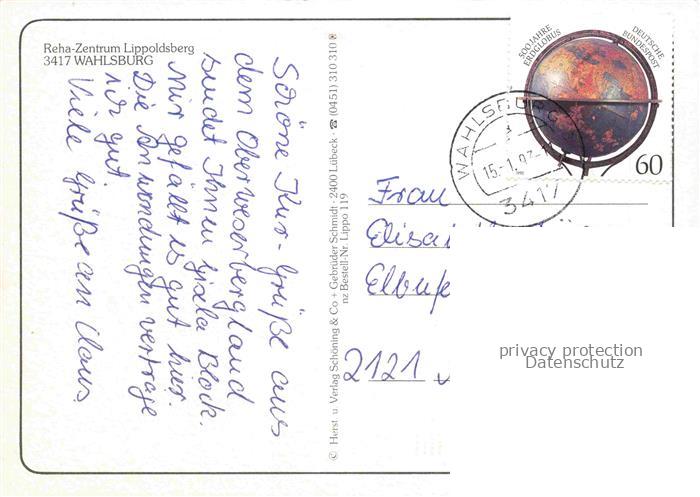 Reha-Zentrum Lippoldsberg
3417 WAHLSBURG
Schöne Kur-Grüße aus
dem Oberweserbergland
sendet Ihnen Gisela Block.
Mir gefällt es gut hier.
Die Anwendungen vertrage
ich gut
Viele Grüße an Claus.
© Herst. u. Verlag Schöning & Co + Gebrüder Schmidt · 2400 Lübeck · ☎ (0451) 310 310
nz Bestell-Nr. Lippo 119
500 JAHRE
ERDGLOBUS
DEUTSCHE
BUNDESPOST
60
WAHLSBURG
3417
Frau
2121
privacy protection
Datenschutz